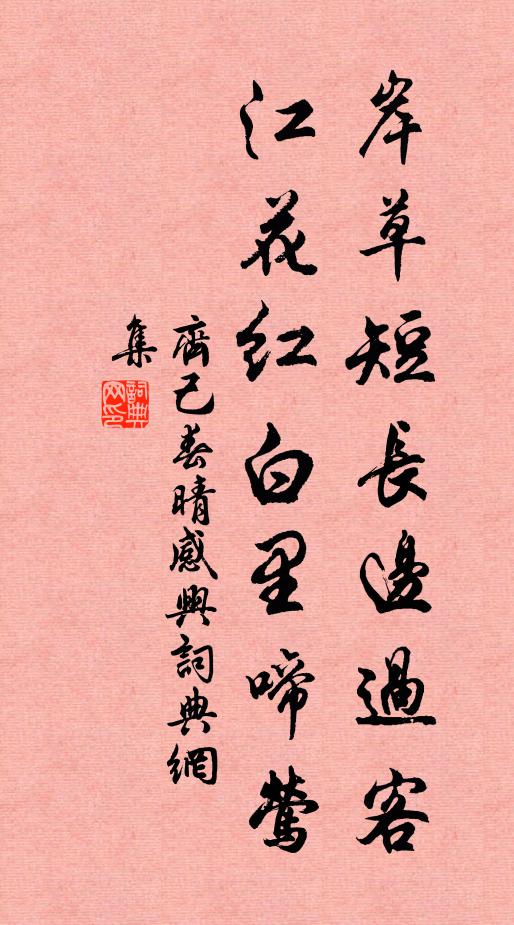 岸草短長邊過客
江花紅白里啼鶯
齊己春晴感興詞典網
集
詞典網印